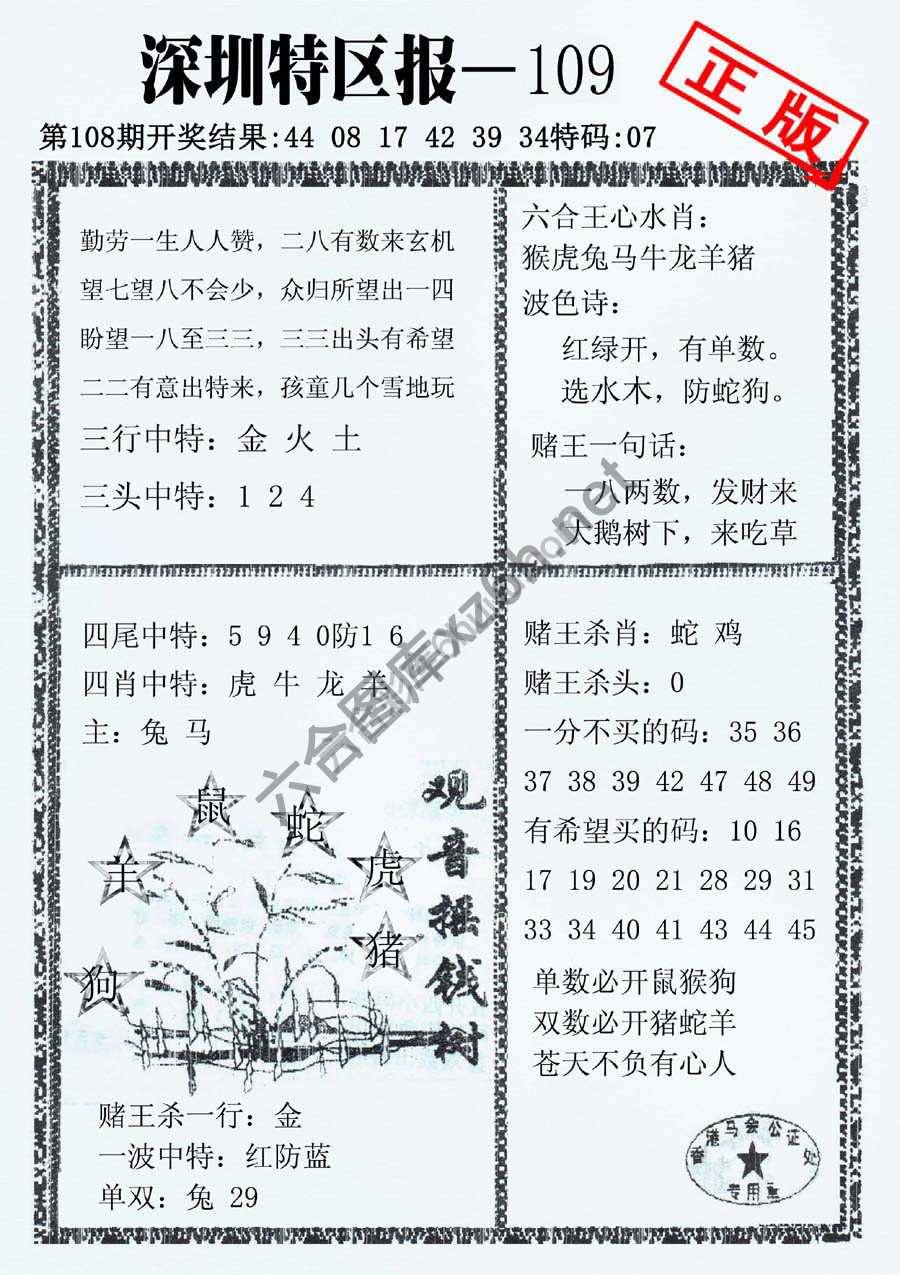 深圳特区报—109
正版
第108期开奖结果:44 08 17 42 39 34特码:07
勤劳一生人人赞，二八有数来玄机
望七望八不会少，众归所望出一四
盼望一八至三三，三三出头有希望
二二有意出特来，孩童几个雪地玩
三行中特：金 火 土
三头中特：1 2 4
六合王心水肖：
猴虎兔马牛龙羊猪
波色诗：
红绿开，有单数。
选水木，防蛇狗。
赌王一句话：
一八两数，发财来
大鹅树下，来吃草
四尾中特：5 9 4 0防1 6
四肖中特：虎 牛 龙 羊
主：兔 马
鼠
蛇
羊
虎
猪
狗
观音摇钱树
赌王杀一行：金
一波中特：红防蓝
单双：兔 29
赌王杀肖：蛇 鸡
赌王杀头：0
一分不买的码：35 36
37 38 39 42 47 48 49
有希望买的码：10 16
17 19 20 21 28 29 31
33 34 40 41 43 44 45
单数必开鼠猴狗
双数必开猪蛇羊
苍天不负有心人
香港马会公证处
专用章